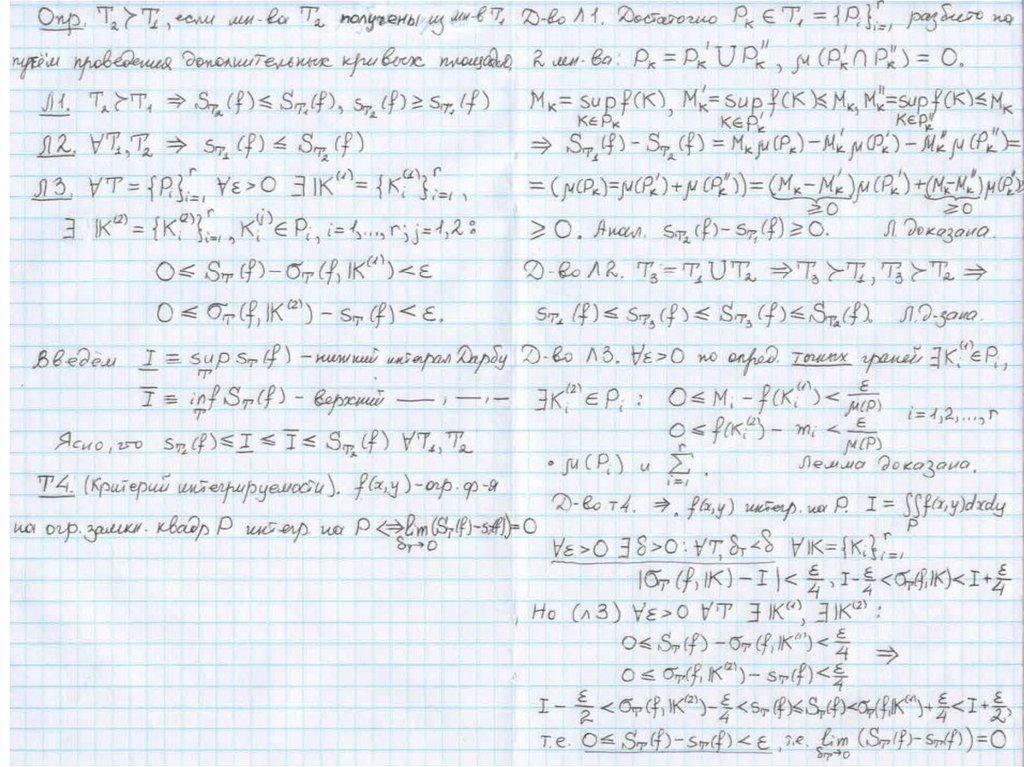 Опр. T₂≻T₁, если мн-ва T₂ получены из мн-в T₁
путём проведения дополнительных кривых площади 0,
Л1. T₂≻T₁ ⇒ S_T₂(f) ≤ S_T₁(f), s_T₂(f) ≥ s_T₁(f)
Л2. ∀T₁,T₂ ⇒ s_T₁(f) ≤ S_T₂(f)
Л3. ∀T = {Pᵢ}ʳᵢ₌₁ ∀ε>0 ∃K⁽¹⁾ = {Kᵢ⁽¹⁾}ʳᵢ₌₁,
∃ K⁽²⁾ = {Kᵢ⁽²⁾}ʳᵢ₌₁, Kᵢ⁽ʲ⁾∈Pᵢ, i=1,...,r; j=1,2:
0 ≤ S_T(f) − σ_T(f,K⁽¹⁾) < ε
0 ≤ σ_T(f,K⁽²⁾) − s_T(f) < ε.
Введём I̲ ≡ sup_T s_T(f) – нижний интеграл Дарбу
I̅ ≡ inf_T S_T(f) – верхний —,—,—
Ясно, что s_T₁(f) ≤ I̲ ≤ I̅ ≤ S_T₂(f) ∀T₁,T₂
Т4. (Критерий интегрируемости). f(x,y)-огр. ф-я
на огр. замкн. квадр P интегр. на P ⇔ lim_{δ_T→0}(S_T(f)−s_T(f))=0
Д-во Л1. Достаточно P_K ∈ T₁ = {Pᵢ}ʳᵢ₌₁ разбито на
2 мн-ва: P_K = P_K′ ∪ P_K″, μ(P_K′ ∩ P_K″) = 0.
M_K = sup_{K∈P_K} f(K), M_K′ = sup_{K∈P_K′} f(K) ≤ M_K, M_K″ = sup_{K∈P_K″} f(K) ≤ M_K
⇒ S_T₁(f) − S_T₂(f) = M_K μ(P_K) − M_K′ μ(P_K′) − M_K″ μ(P_K″) =
= (μ(P_K)=μ(P_K′)+μ(P_K″)) = (M_K−M_K′)μ(P_K′) + (M_K−M_K″)μ(P_K″)
≥0 ≥0
≥ 0. Анал. s_T₂(f) − s_T₁(f) ≥ 0. Л. доказана.
Д-во Л2. T₃ = T₁ ∪ T₂ ⇒ T₃≻T₁, T₃≻T₂ ⇒
s_T₁(f) ≤ s_T₃(f) ≤ S_T₃(f) ≤ S_T₂(f). Л.д-зана.
Д-во Л3. ∀ε>0 по опред. точных граней ∃Kᵢ⁽¹⁾∈Pᵢ,
∃Kᵢ⁽²⁾∈Pᵢ: 0 ≤ Mᵢ − f(Kᵢ⁽¹⁾) < ε/μ(P)
0 ≤ f(Kᵢ⁽²⁾) − mᵢ < ε/μ(P) i=1,2,...,r
• μ(Pᵢ) и Σʳᵢ₌₁. Лемма доказана.
Д-во т4. ⇒. f(x,y) интегр. на P. I = ∬_P f(x,y)dxdy
∀ε>0 ∃δ>0: ∀T, δ_T<δ ∀K={Kᵢ}ʳᵢ₌₁
|σ_T(f,K) − I| < ε/4, I−ε/4 < σ_T(f,K) < I+ε/4
Но (л3) ∀ε>0 ∀T ∃K⁽¹⁾, ∃K⁽²⁾:
0 ≤ S_T(f) − σ_T(f,K⁽¹⁾) < ε/4 ⇒
0 ≤ σ_T(f,K⁽²⁾) − s_T(f) < ε/4
I − ε/2 < σ_T(f,K⁽²⁾) − ε/4 < s_T(f) ≤ S_T(f) < σ_T(f,K⁽¹⁾) + ε/4 < I + ε/2,
т.е. 0 ≤ S_T(f) − s_T(f) < ε, т.е. lim_{δ_T→0} (S_T(f) − s_T(f)) = 0